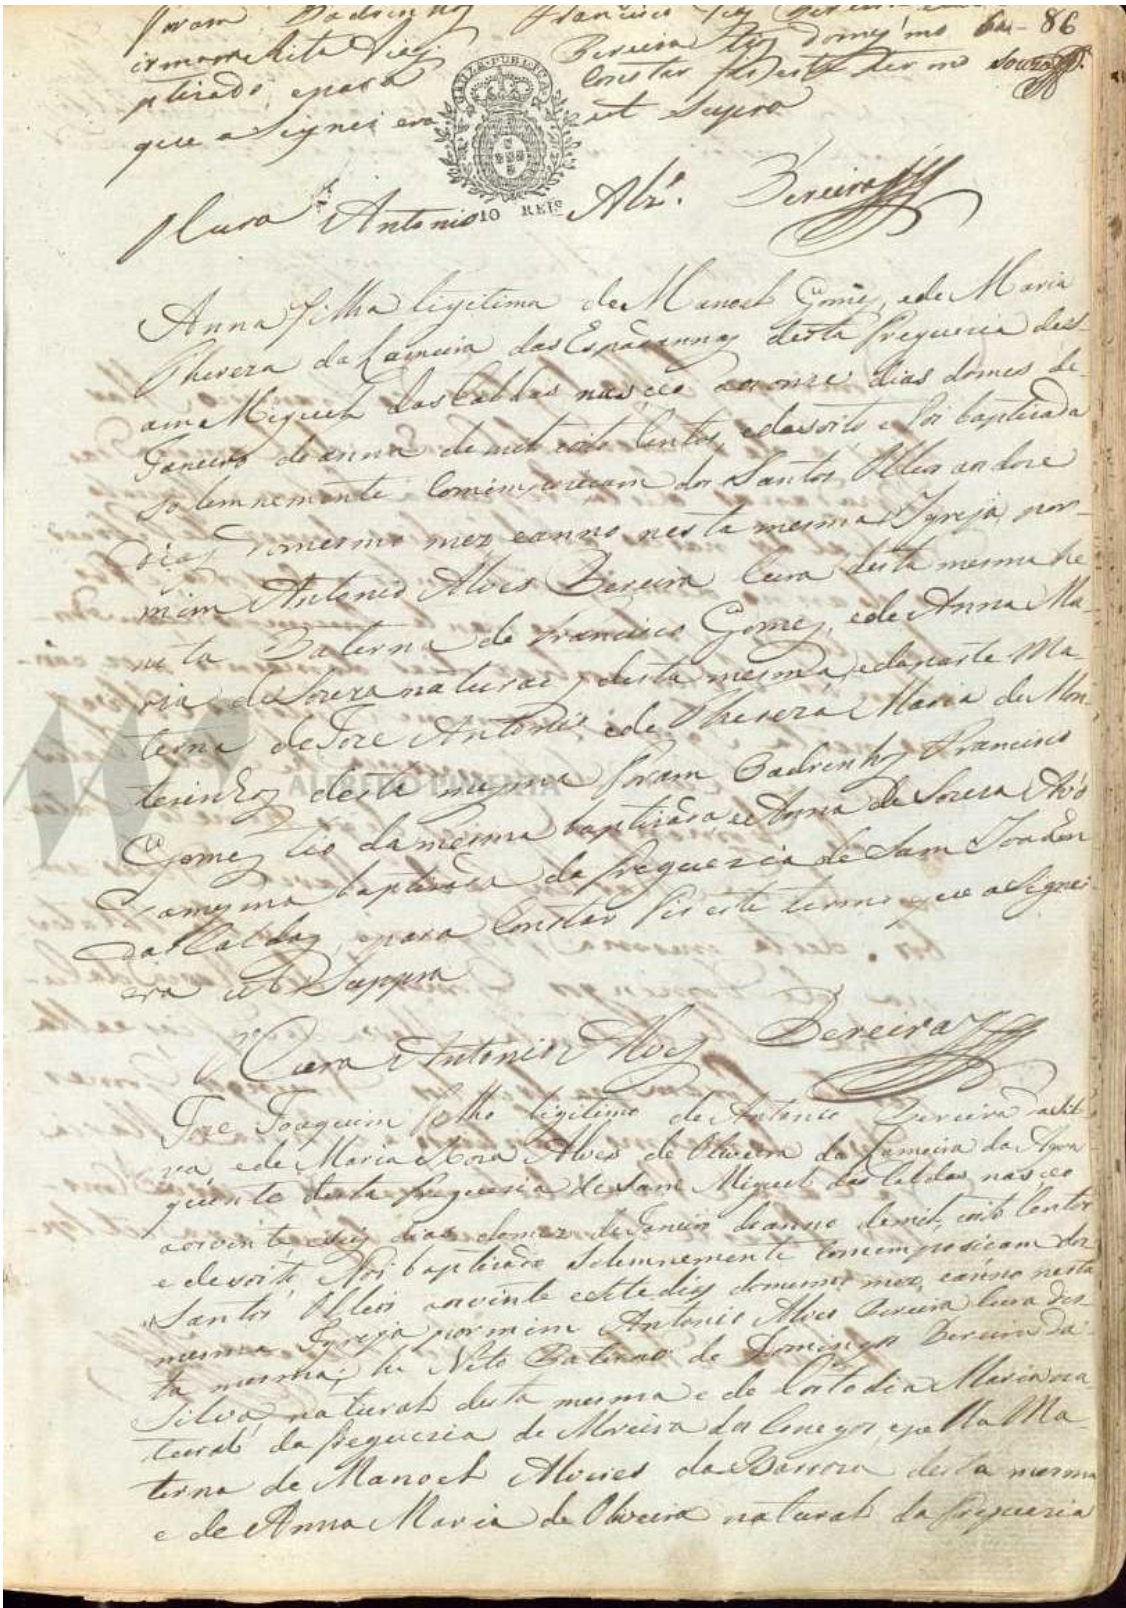 foram Padrinhos Francisco Jose Pereira 86
irmam Rita Pereira tios do mesmo ba-
ptizado, epara Constar fis este termo Souza
que asignei era ut Supra
CAUZA PUBLICA
10 REIS
O Cura Antonio Alz.' Pereira
Anna filha ligitima de Manoel Gomes, ede Maria
Thereza da Lameira das Espadannas desta Freguezia deS-
am Miguel das Caldas nasceo aos onze dias domes de
Janeiro do anno de mil oito Centos, edesoito e foi baptizada
solemnemente Comimposicam dos Santos Olleos aos doze
dias domesmo mez eanno nesta mesma Igreja por
mim Antonio Alves Pereira Cura desta mesma he
neta Paterna de Francisco Gomes, ede Anna Ma-
ria de Souza naturaes desta mesma, edaparte Ma-
terna de Joze Antonio, ede Thereza Maria de Mon-
teinhos desta mesma foram Padrinhos Francisco
Gomes tio damesma baptizada e Anna de Souza Avó
damesma baptizada da freguezia de Sam Joaõ
das Caldas, epara Constar fis este termo que asignei
era ut Suppra
O Cura Antonio Alves Pereira
Joze Joaquim filho ligitimo de Antonio Pereira daSil-
va ede Maria Roza Alves de Oliveira da Lameira da Agoa
quente desta freguezia de Sam Miguel das Caldas nasceo
aos vinte eseis dias domez de Janeiro do anno demil, oito Centos
e desoito, foi baptizado solemnemente Comimposicam dos
Santos Olleos aos vinte esete dias domesmo mez, eanno nesta
mesma Igreja por mim Antonio Alves Pereira Cura des-
ta mesma; he Neto Paterno de Domingos Pereira da
Silva natural desta mesma e de Costodia Maria na-
tural da freguezia de Moreira dos Conegos epella Ma-
terna de Manoel Alveres da Barroza desta mesma
e de Anna Maria de Oliveira natural da freguezia